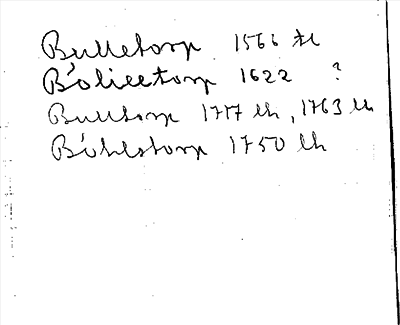 Bulletorp 1566 tl
Bólicetorp 1622 ?
Bulltorp 1717 lh, 1763 lh
Bóhlstorp 1750 lh